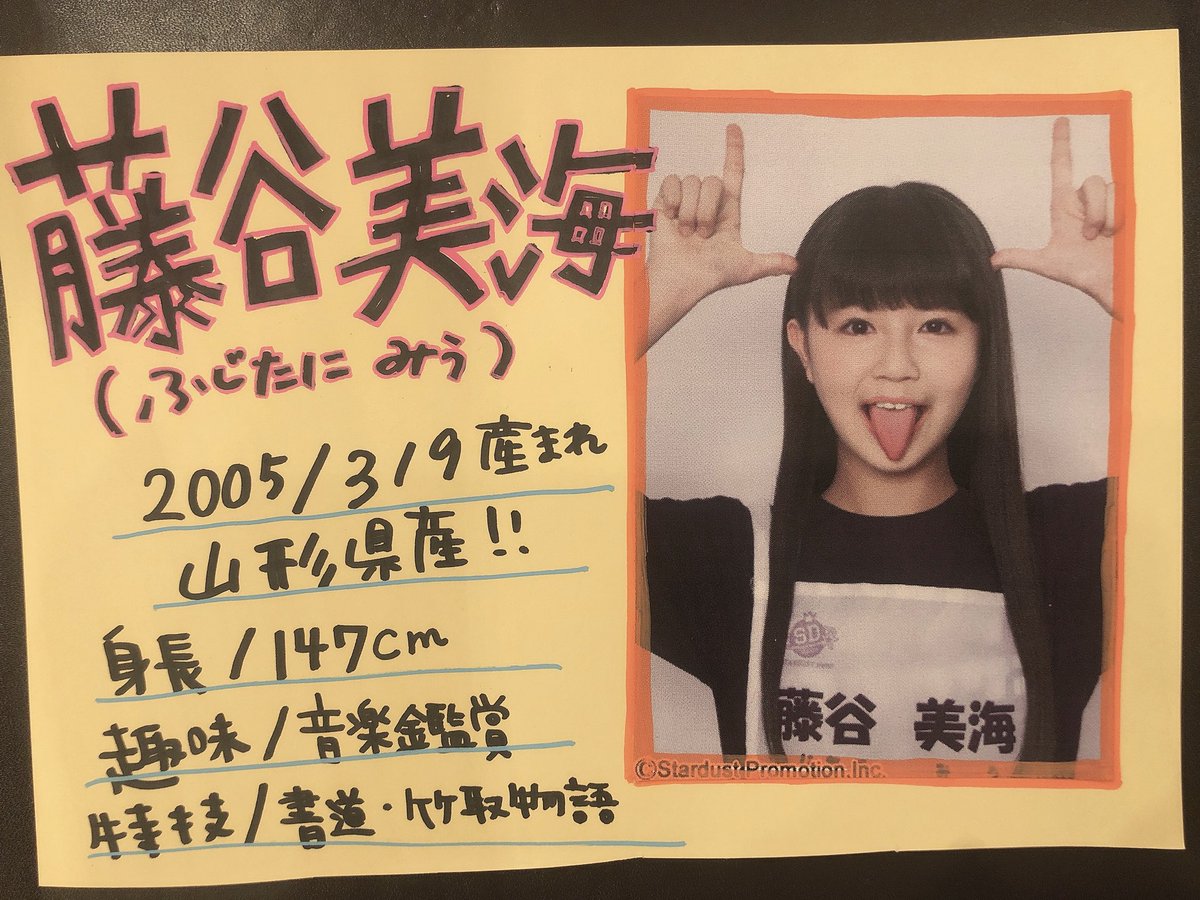 藤谷美海
(ふじたに みう)
2005/3/9産まれ
山形県産!!
身長/147cm
趣味/音楽鑑賞
特技/書道・竹取物語
SD
藤谷 美海
©Stardust Promotion.Inc.